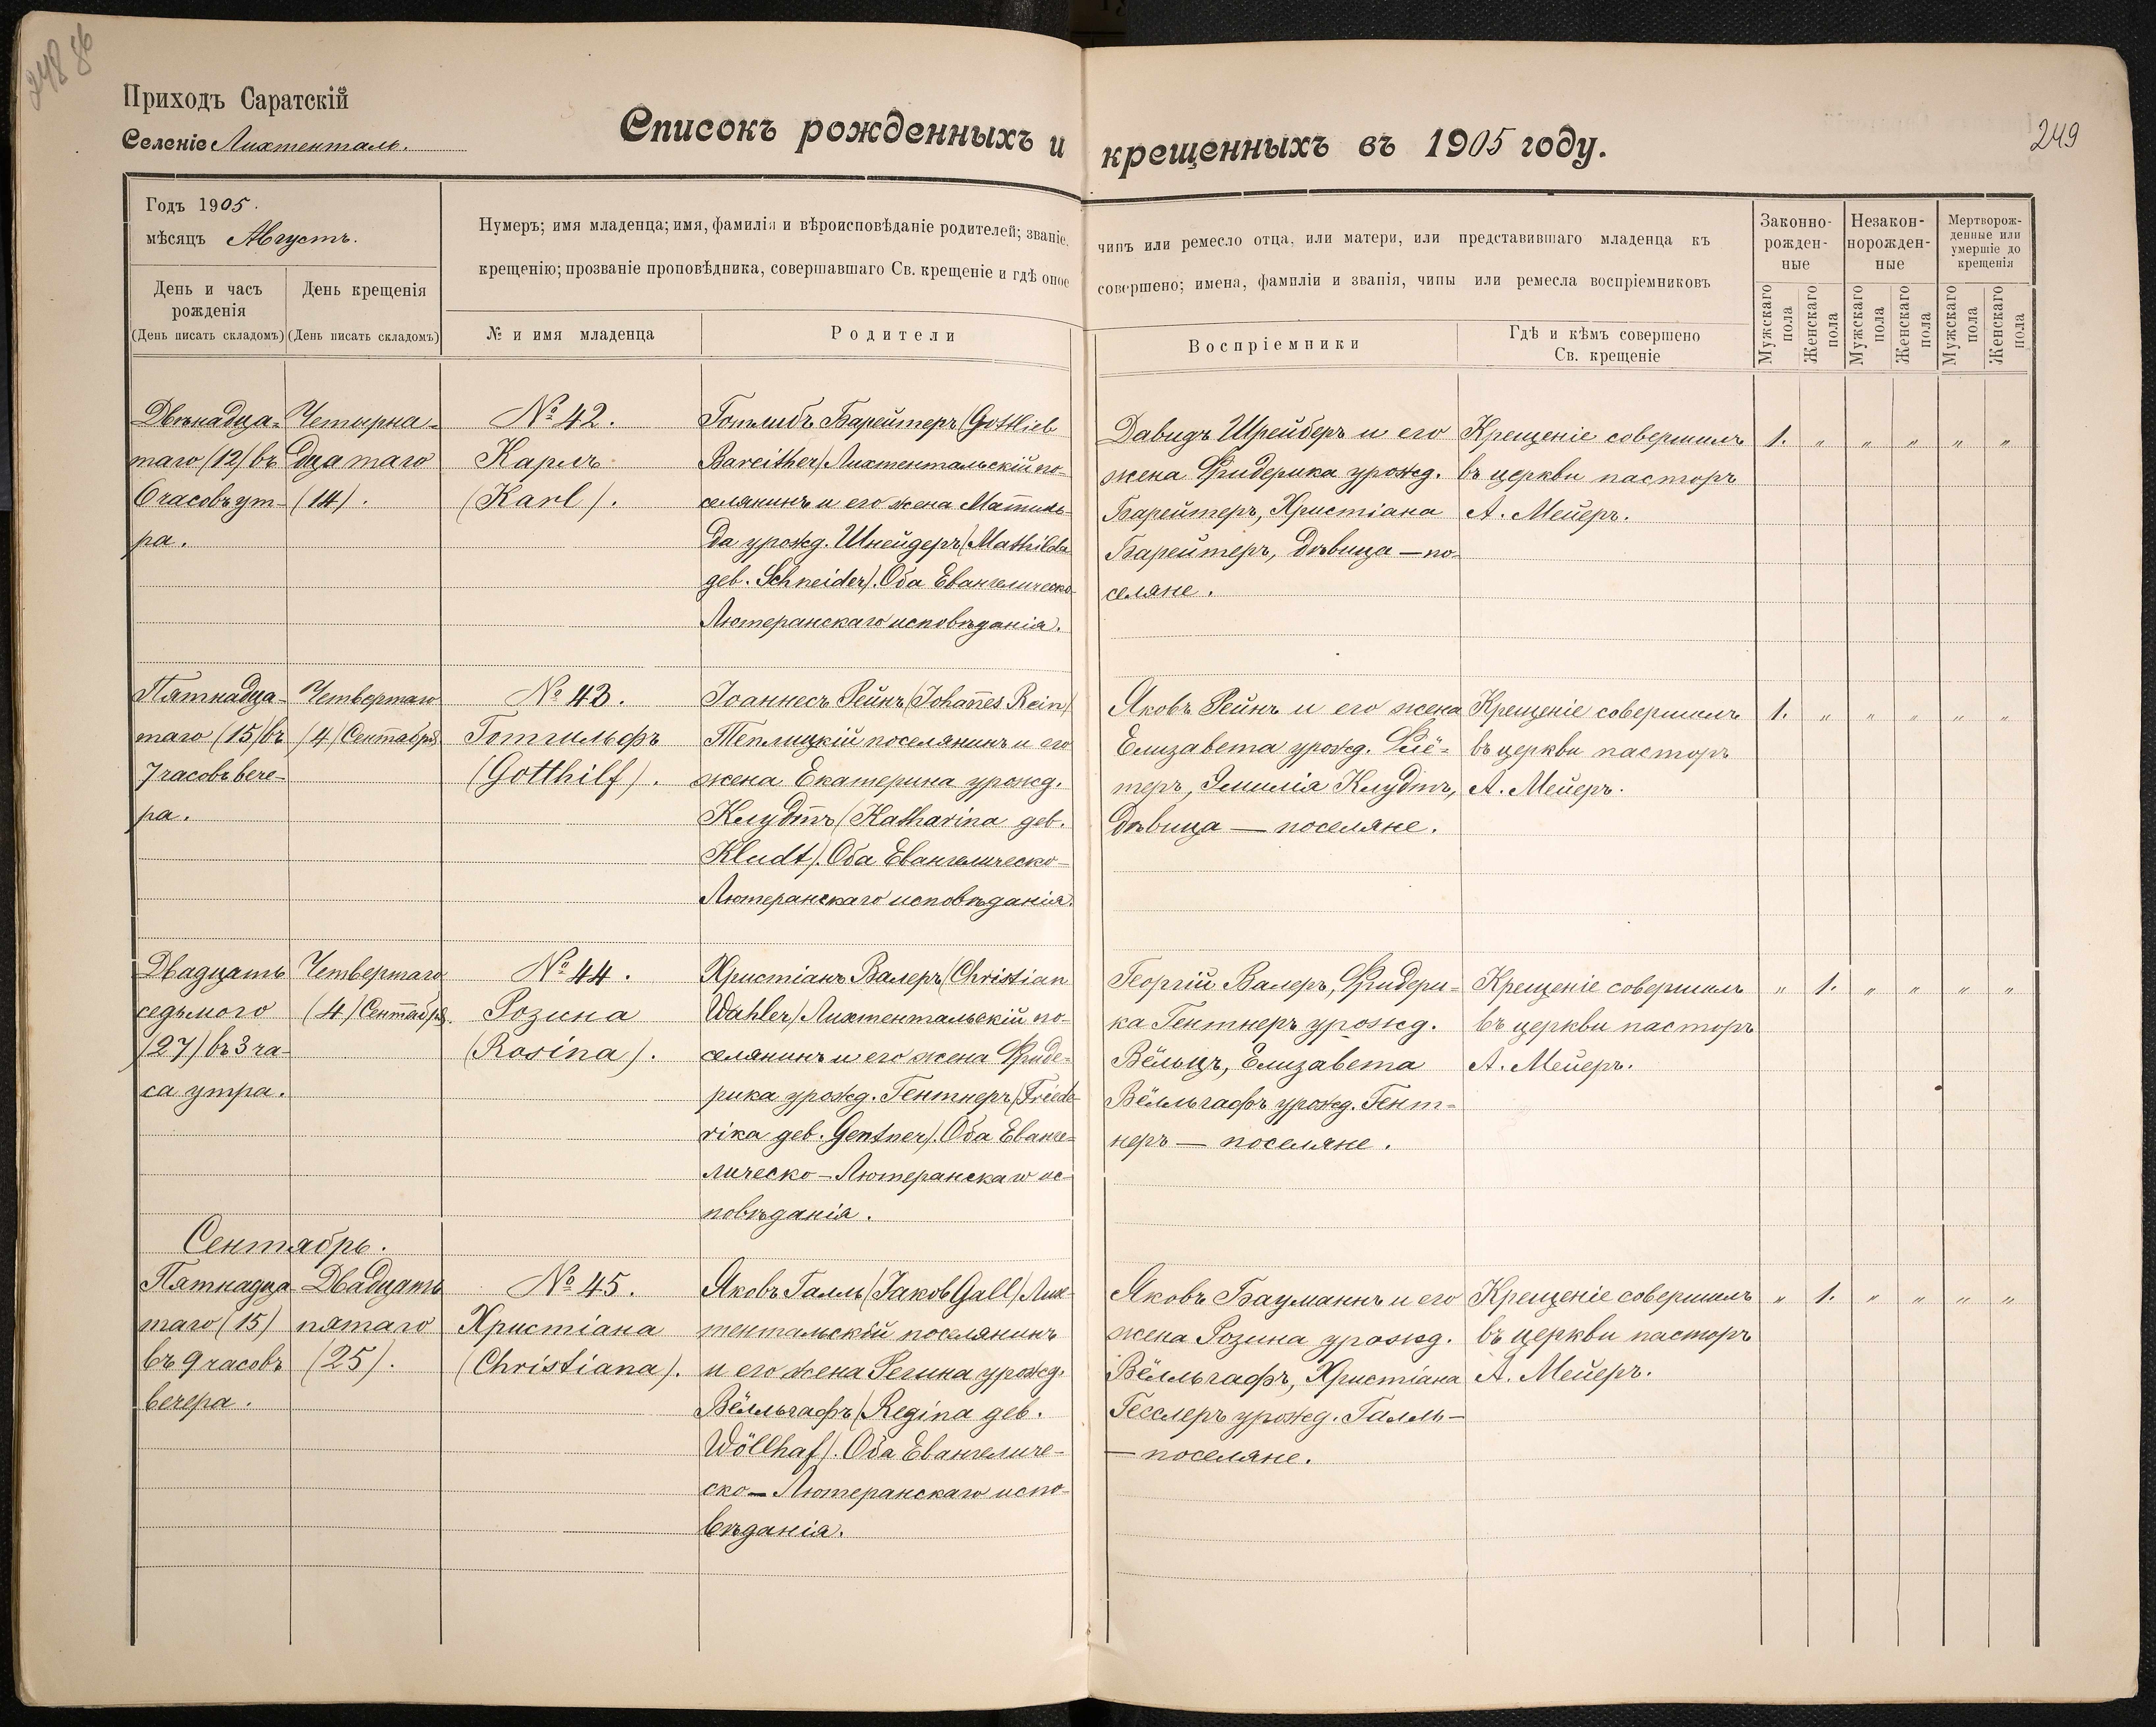 248
Приходъ Саратскій
Селеніе Лихтенталь.
Списокъ рожденныхъ и крещенныхъ въ 1905 году.
249
Годъ 1905.
мѣсяцъ Августъ.
День и часъ
рожденія
(День писать складомъ)
День крещенія
(День писать складомъ)
Нумеръ; имя младенца; имя, фамилія и вѣроисповѣданіе родителей; званіе,
крещенію; прозваніе проповѣдника, совершавшаго Св. крещеніе и гдѣ оное
№ и имя младенца
Родители
чинъ или ремесло отца, или матери, или представившаго младенца къ
совершено; имена, фамиліи и званія, чины или ремесла воспріемниковъ
Воспріемники
Гдѣ и кѣмъ совершено
Св. крещеніе
Законно-
рожден-
ные
Незакон-
норожден-
ные
Мертворож-
денные или
умершіе до
крещенія
Мужскаго
пола
Женскаго
пола
Мужскаго
пола
Женскаго
пола
Мужскаго
пола
Женскаго
пола
Двѣнадца-
таго (12) въ
6 часовъ ут-
ра.
Четырна-
дцатаго
(14).
№ 42.
Карлъ
(Karl).
Готлибъ Барейтеръ (Gottlieb
Bareither) Лихтентальскій по-
селянинъ и его жена Матиль-
да урожд. Шнейдеръ (Mathilda
geb. Schneider). Оба Евангелическо-
Лютеранскаго исповѣданія.
Давидъ Шрейберъ и его
жена Фридерика урожд.
Барейтеръ, Христіана
Барейтеръ, дѣвица — по-
селяне.
Крещеніе совершилъ
въ церкви пасторъ
А. Мейеръ.
1. „ „ „ „ „
Пятнадца-
таго (15) въ
7 часовъ вече-
ра.
Четвертаго
(4) Сентября
№ 43.
Готгильфъ
(Gotthilf).
Іоаннесъ Рейнъ (Johannes Rein)
Теплицкій поселянинъ и его
жена Екатерина урожд.
Клудтъ (Katharina geb.
Kludt). Оба Евангелическо-
Лютеранскаго исповѣданія.
Яковъ Рейнъ и его жена
Елизавета урожд.
Эмилія Клудтъ,
дѣвица — поселяне.
Крещеніе совершилъ
въ церкви пасторъ
А. Мейеръ.
1. „ „ „ „ „
Двадцать
седьмого
(27) въ 3 ча-
са утра.
Четвертаго
(4) Сентября.
№ 44.
Розина
(Rosina).
Христіанъ Валеръ (Christian
Wahler) Лихтентальскій по-
селянинъ и его жена Фриде-
рика урожд. Гентнеръ (Friede-
rika geb. Gentner). Оба Еванге-
лическо-Лютеранскаго ис-
повѣданія.
Георгій Валеръ, Фридери-
ка Гентнеръ урожд.
Вёльцъ, Елизавета
Вёлльгафъ урожд. Гент-
неръ — поселяне.
Крещеніе совершилъ
въ церкви пасторъ
А. Мейеръ.
„ 1. „ „ „ „
Сентябрь.
Пятнадца
таго (15)
въ 9 часовъ
вечера.
Двадцать
пятаго
(25).
№ 45.
Христіана
(Christiana).
Яковъ Галль (Jakob Gall) Лих-
тентальскій поселянинъ
и его жена Регина урожд.
Вёлльгафъ (Regina geb.
Wöllhaf). Оба Евангеличе-
ско-Лютеранскаго испо-
вѣданія.
Яковъ Бауманнъ и его
жена Розина урожд.
Вёлльгафъ, Христіана
Гесслеръ урожд. Галль —
— поселяне.
Крещеніе совершилъ
въ церкви пасторъ
А. Мейеръ.
„ 1. „ „ „ „